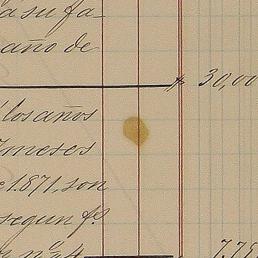 á su fa-
año de
$ 30,00
los años
7 meses
e 1.871, son
segun fs.
n nº 4 7,78